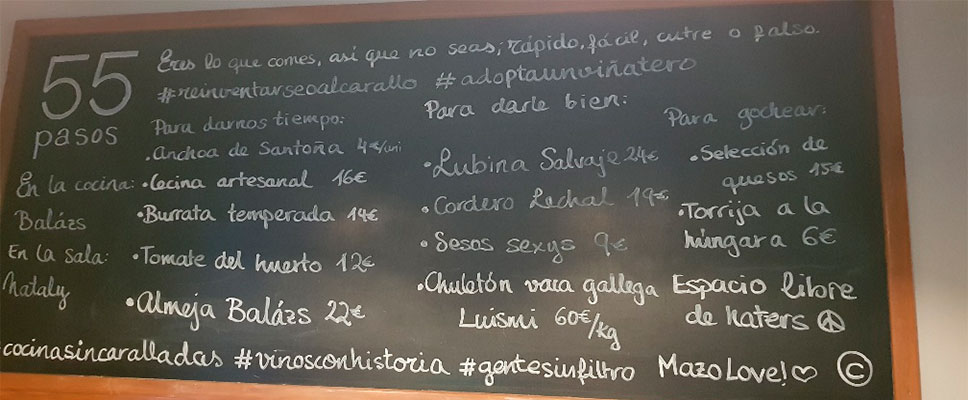 55
pasos
Eres lo que comes, así que no seas; rápido, fácil, cutre o falso.
#reinventarseoalcarallo #adoptaunviñatero
En la cocina:
Balázs
En la sala:
Nataly
Para darnos tiempo:
•Anchoa de Santoña 4€/uni
•Cecina artesanal 16€
•Burrata temperada 14€
•Tomate del huerto 12€
•Almeja Balázs 22€
Para darle bien:
•Lubina Salvaje 24€
•Cordero Lechal 19€
•Sesos sexys 9€
•Chuletón vaca gallega
Luismi 60€/kg
Para gochear:
•Selección de
quesos 15€
•Torrija a la
húngara 6€
Espacio libre
de haters ☮
cocinasincaralladas #vinosconhistoria #gentesinfiltro MazoLove!♡ ©